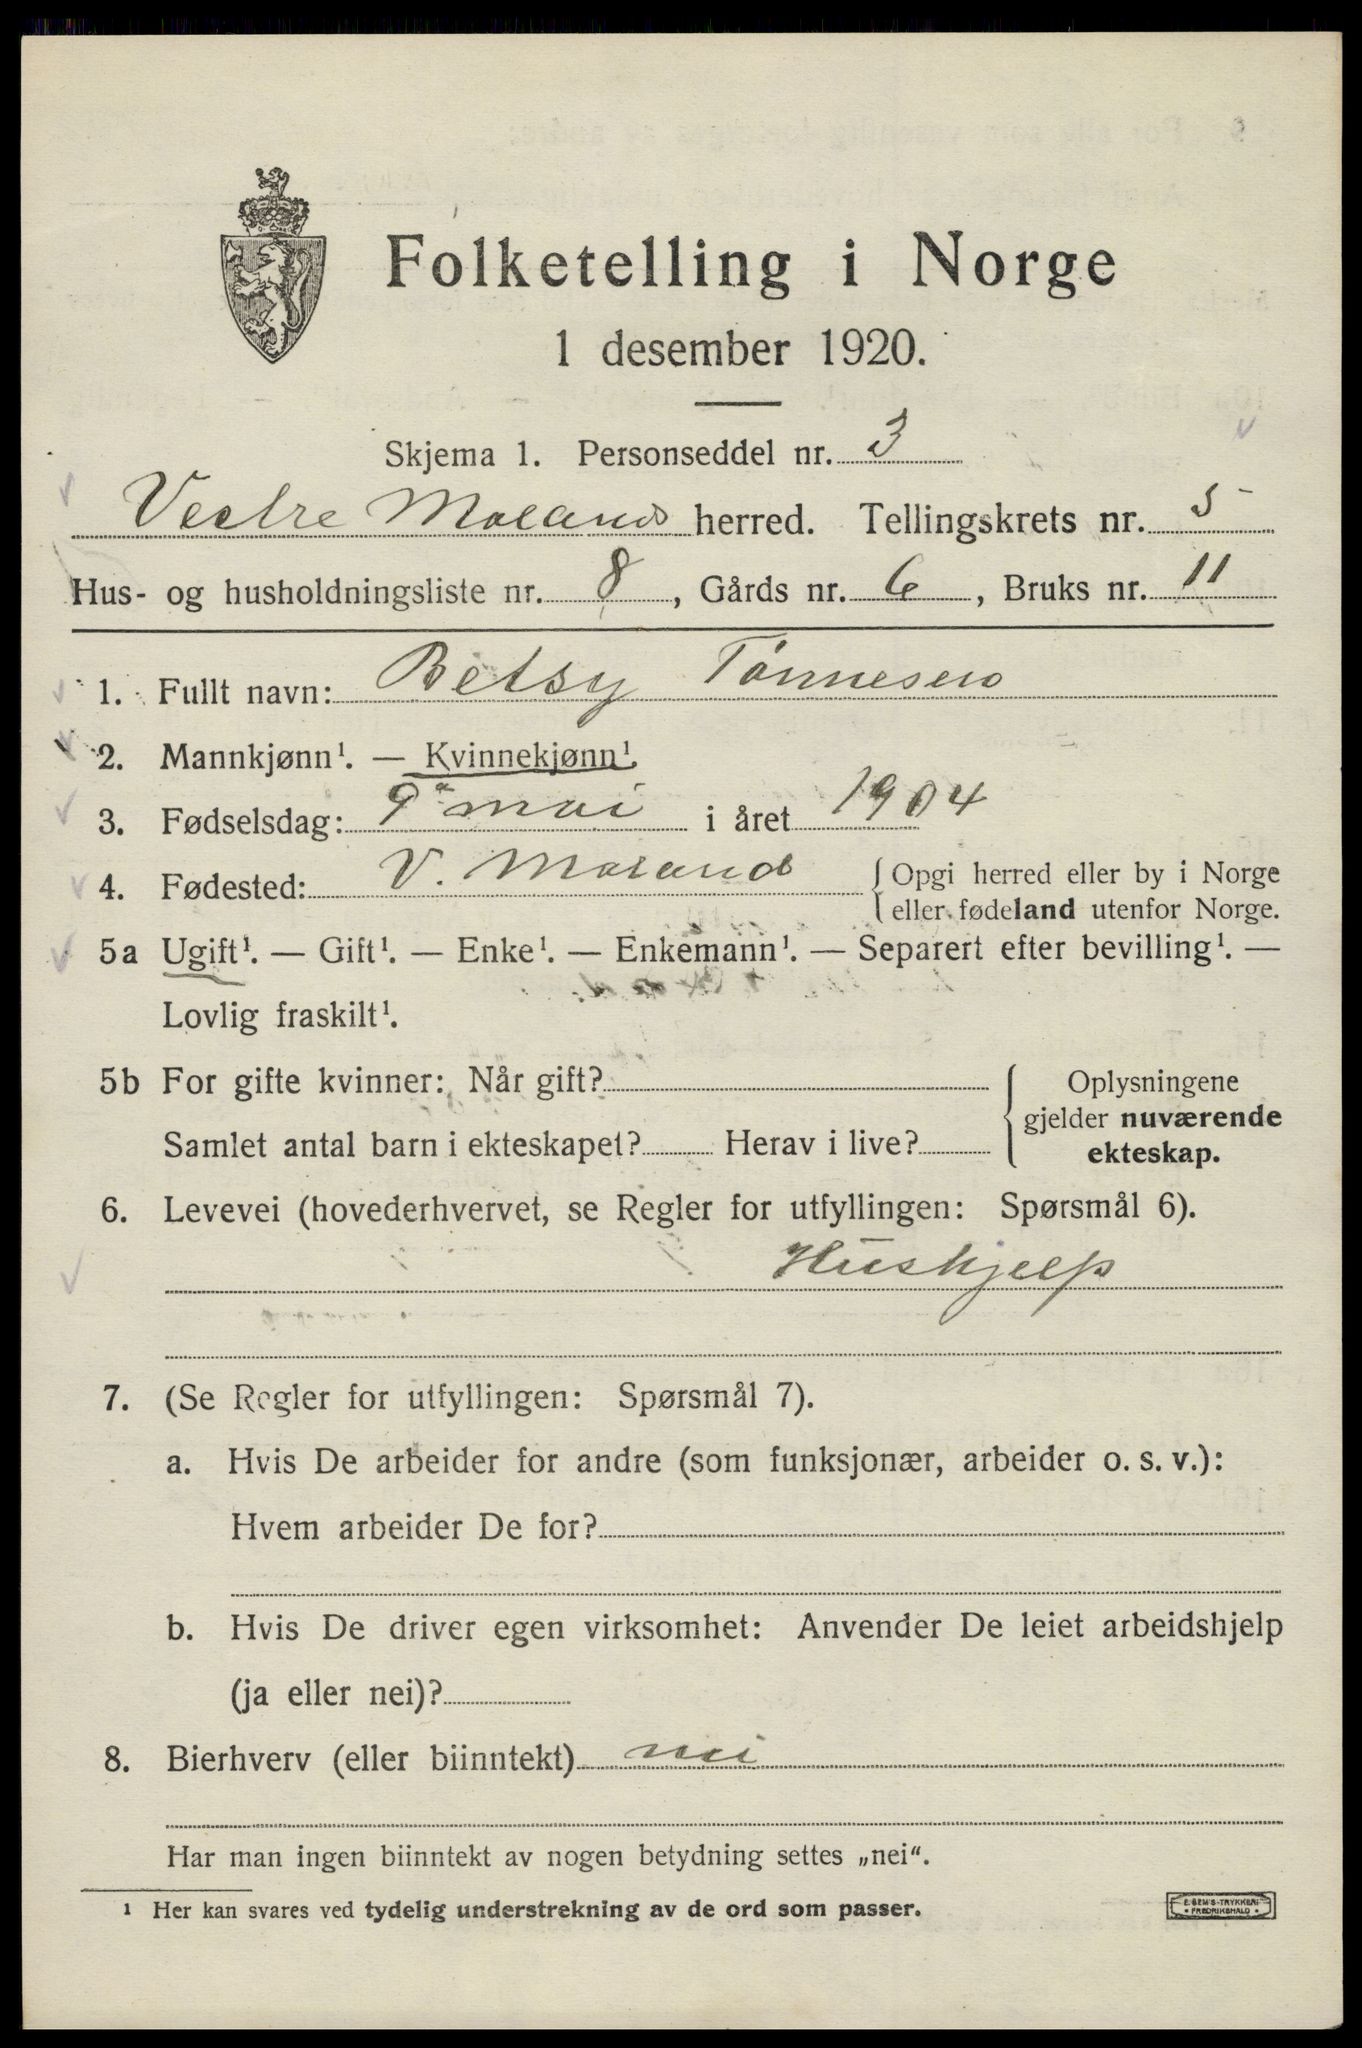 Folketelling i Norge
1 desember 1920.
Skjema 1. Personseddel nr. 3
Vestre Moland herred. Tellingskrets nr. 5
Hus- og husholdningsliste nr. 8, Gårds nr. 6, Bruks nr. 11
1. Fullt navn: Betsy Tønnesen
2. Mannkjønn¹. — Kvinnekjønn¹.
3. Fødselsdag: 9de mai i året 1904
4. Fødested: V. Moland {Opgi herred eller by i Norge
eller fødeland utenfor Norge.
5a Ugift¹. — Gift¹. — Enke¹. — Enkemann¹. — Separert efter bevilling¹. —
Lovlig fraskilt¹.
5b For gifte kvinner: Når gift?
Samlet antal barn i ekteskapet? Herav i live?
Oplysningene
gjelder nuværende
ekteskap.
6. Levevei (hovederhvervet, se Regler for utfyllingen: Spørsmål 6).
Hushjelp
7. (Se Regler for utfyllingen: Spørsmål 7).
a. Hvis De arbeider for andre (som funksjonær, arbeider o. s. v.):
Hvem arbeider De for?
b. Hvis De driver egen virksomhet: Anvender De leiet arbeidshjelp
(ja eller nei)?
8. Bierhverv (eller biinntekt) nei
Har man ingen biinntekt av nogen betydning settes „nei“.
¹ Her kan svares ved tydelig understrekning av de ord som passer.
E. SEM'S-TRYKKERI
FREDRIKSHALD